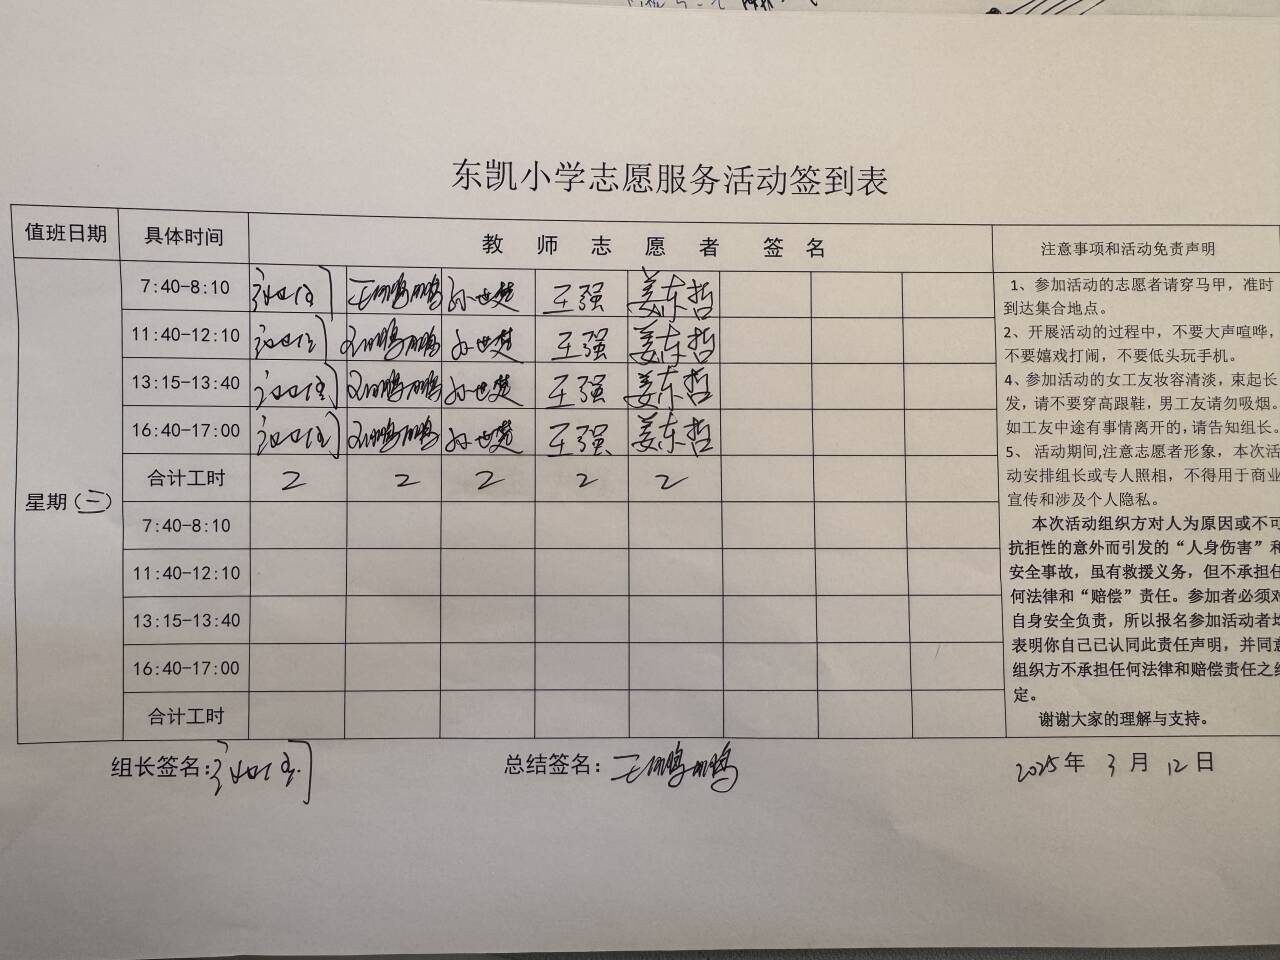 东凯小学志愿服务活动签到表
值班日期 具体时间 教师志愿者签名 注意事项和活动免责声明
星期(三)
7:40-8:10 孙世楚 王强 姜东哲
11:40-12:10 孙世楚 王强 姜东哲
13:15-13:40 孙世楚 王强 姜东哲
16:40-17:00 孙世楚 王强 姜东哲
合计工时 2 2 2 2 2
7:40-8:10
11:40-12:10
13:15-13:40
16:40-17:00
合计工时
1、参加活动的志愿者请穿马甲，准时
到达集合地点。
2、开展活动的过程中，不要大声喧哗，
不要嬉戏打闹，不要低头玩手机。
4、参加活动的女工友妆容清淡，束起长
发，请不要穿高跟鞋，男工友请勿吸烟。
如工友中途有事情离开的,请告知组长。
5、活动期间,注意志愿者形象，本次活
动安排组长或专人照相，不得用于商业
宣传和涉及个人隐私。
本次活动组织方对人为原因或不可
抗拒性的意外而引发的“人身伤害”和
安全事故，虽有救援义务，但不承担任
何法律和“赔偿”责任。参加者必须对
自身安全负责，所以报名参加活动者均
表明你自己已认同此责任声明，并同意
组织方不承担任何法律和赔偿责任之约
定。
谢谢大家的理解与支持。
组长签名: 总结签名: 2025年 3月 12日